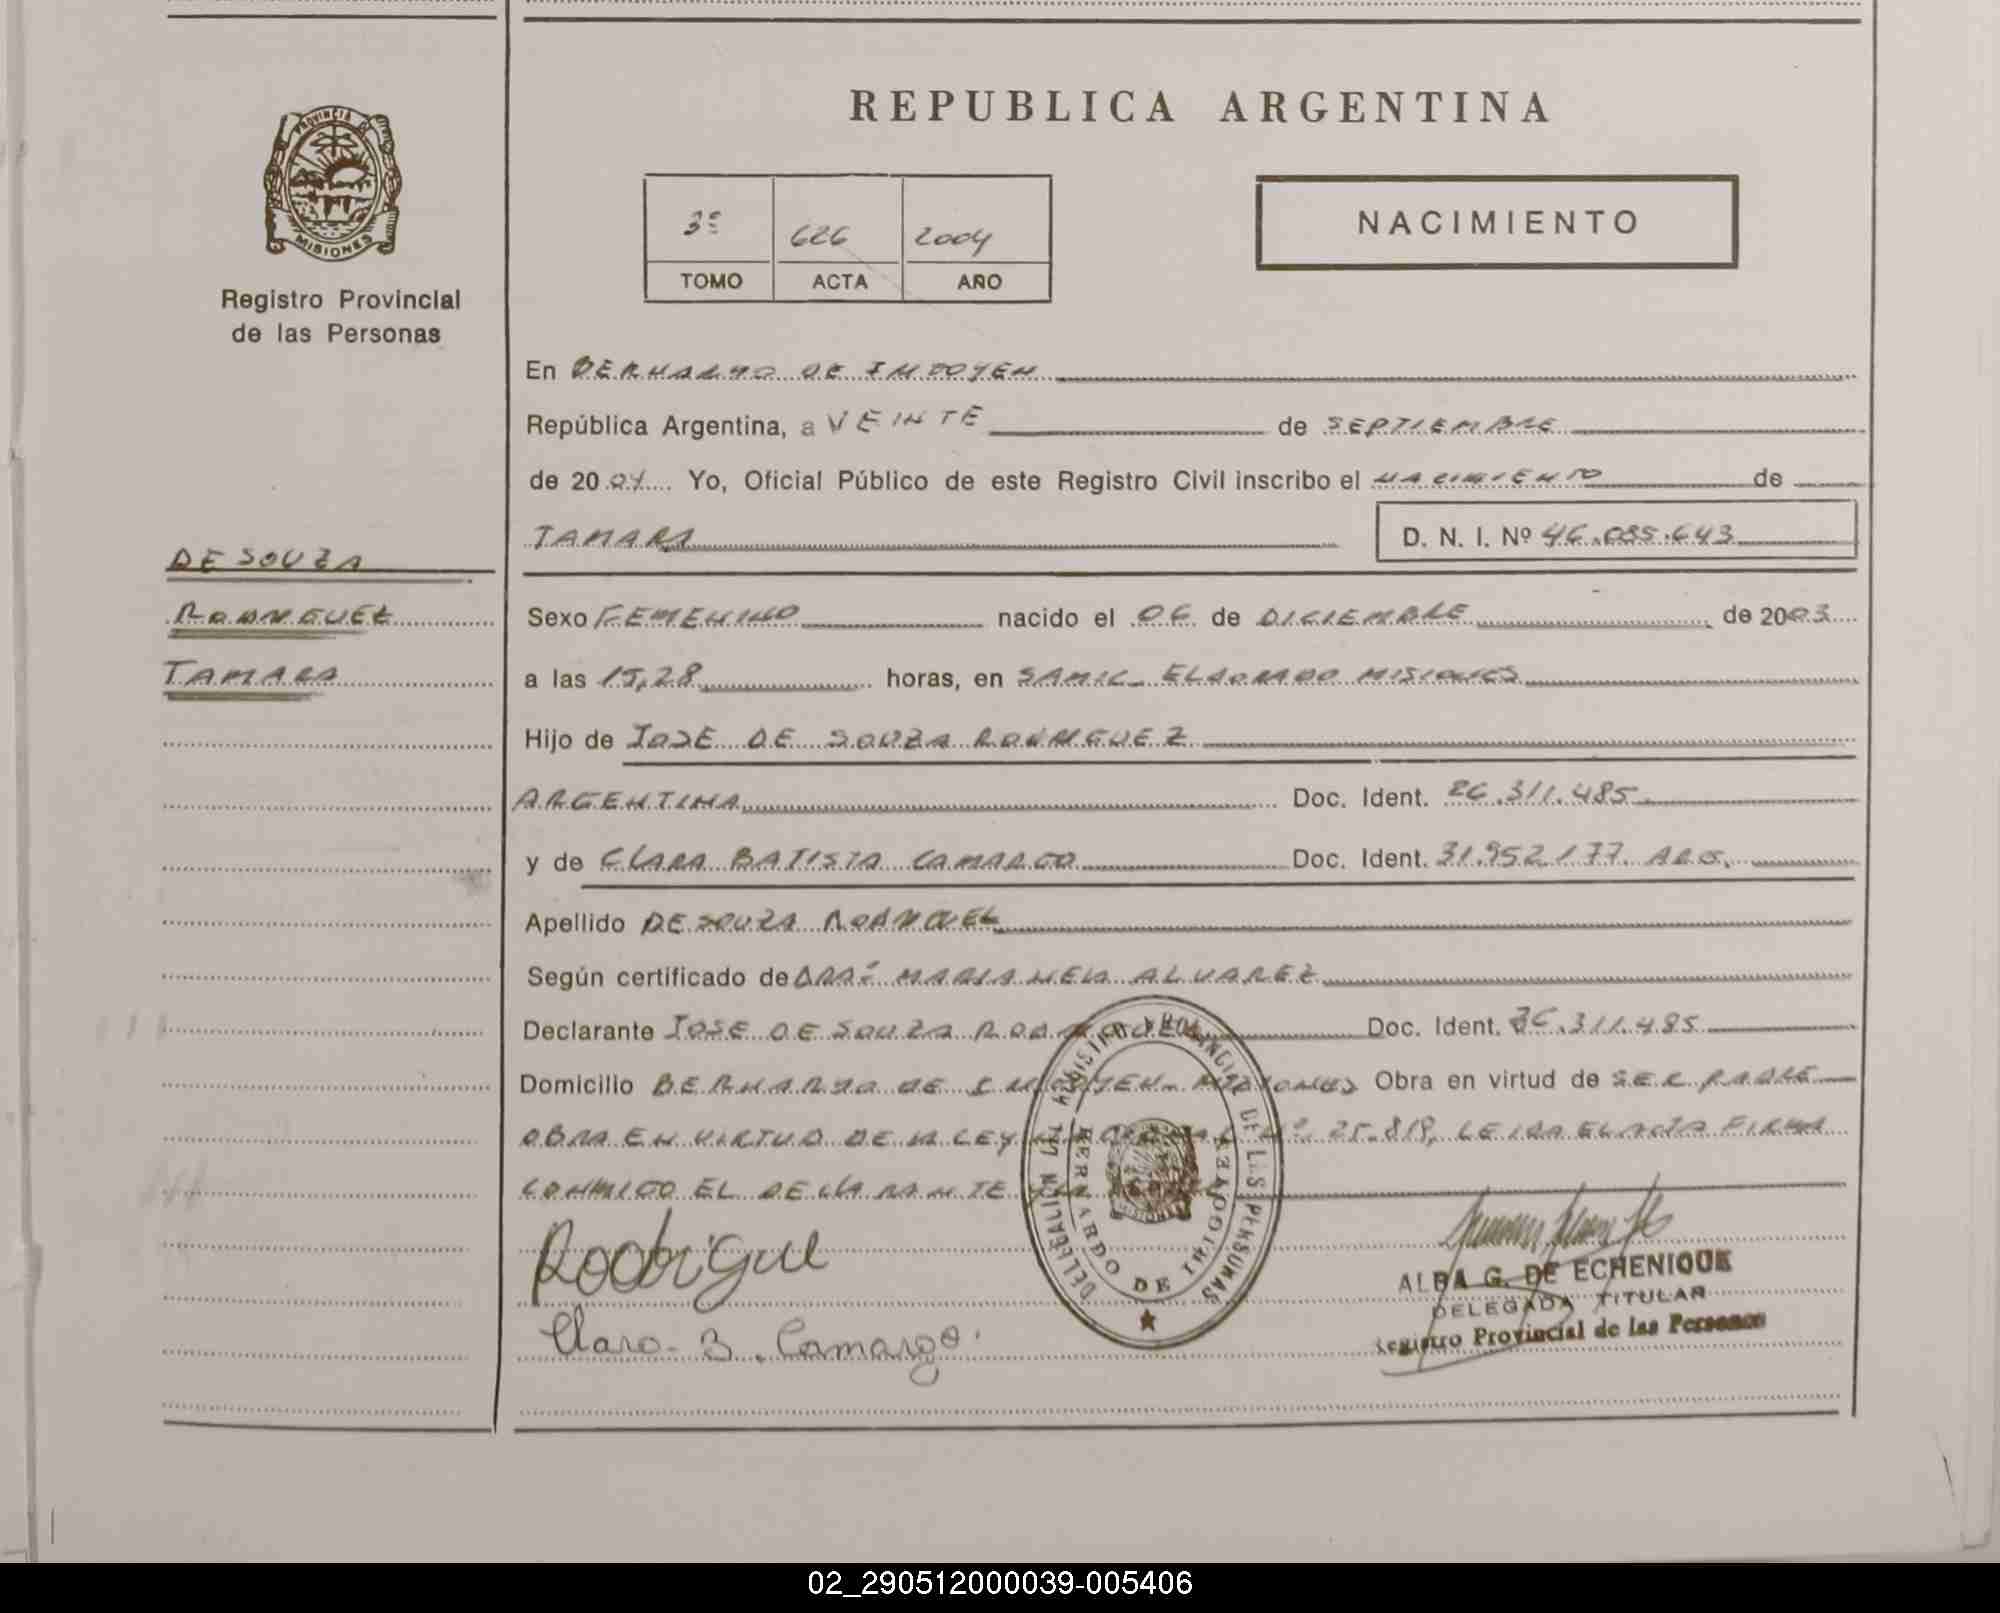 PROVINCIA DE
MISIONES
Registro Provincial
de las Personas
DE SOUZA
RODRIGUEZ
TAMARA
REPUBLICA ARGENTINA
3º 626 2004
TOMO ACTA AÑO
NACIMIENTO
En BERNARDO DE IRIGOYEN
República Argentina, a VEINTE de SEPTIEMBRE
de 2004 Yo, Oficial Público de este Registro Civil inscribo el NACIMIENTO de
TAMARA D. N. I. Nº 46.085.643
Sexo FEMENINO nacido el 06 de DICIEMBRE de 2003
a las 15,28 horas, en SAMIC ELDORADO MISIONES
Hijo de JOSE DE SOUZA RODRIGUEZ
ARGENTINA Doc. Ident. 26.311.485
y de CLARA BATISTA CAMARGO Doc. Ident. 31.952.177 ARG.
Apellido DE SOUZA RODRIGUEZ
Según certificado de DRA. MARIANELA ALVAREZ
Declarante JOSE DE SOUZA RODRIGUEZ Doc. Ident. 26.311.485
Domicilio BERNARDO DE IRIGOYEN - MISIONES Obra en virtud de SER PADRE
OBRA EN VIRTUD DE LA LEY NACIONAL Nº 25.819, LEIDA EL ACTA FIRMA
CONMIGO EL DECLARANTE
Rodrigue
Clara B. Camargo
REGISTRO PROVINCIAL DE LAS PERSONAS
BERNARDO DE IRIGOYEN
MISIONES
ALBA G. DE ECHENIQUE
DELEGADA TITULAR
Registro Provincial de las Personas
02_290512000039-005406